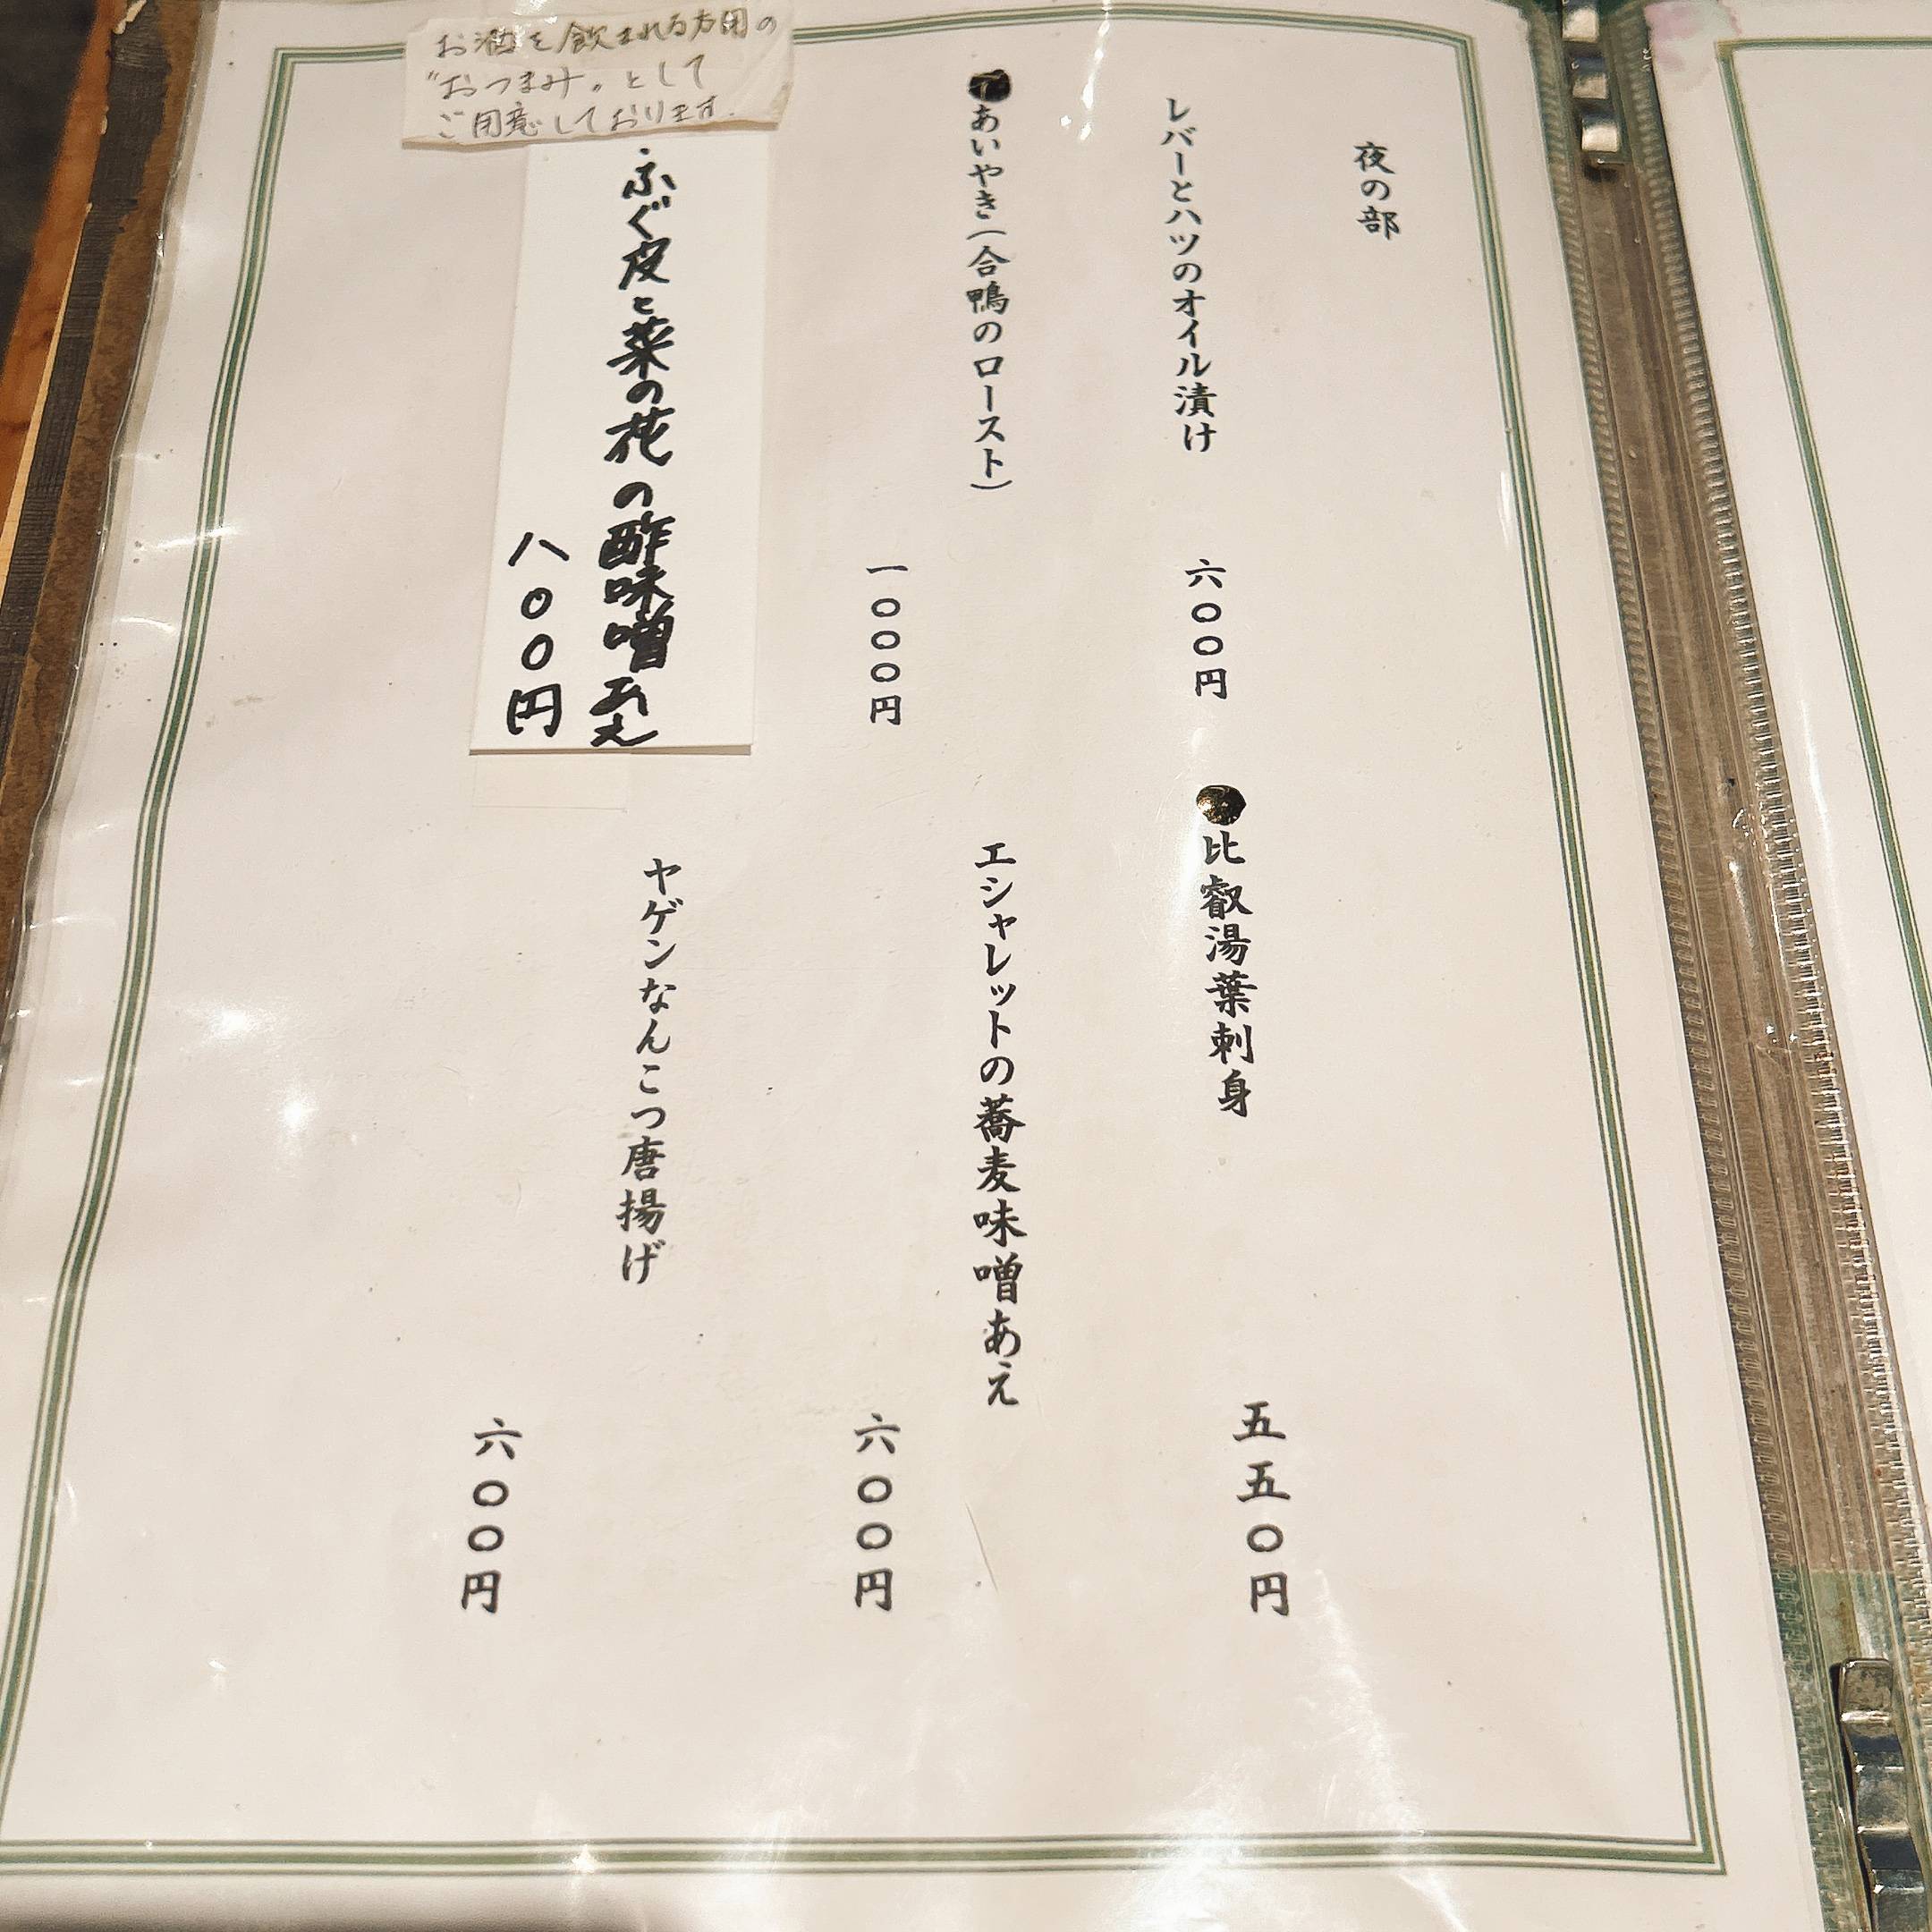 夜の部
レバーとハツのオイル漬け
六〇〇円
比叡湯葉刺身
五五〇円
あいやき（合鴨のロースト）
一〇〇〇円
エシャレットの蕎麦味噌あえ
六〇〇円
お酒を飲まれる方用の
"おつまみ"として
ご用意しております.
ふぐ皮と菜の花の酢味噌あえ
八〇〇円
ヤゲンなんこつ唐揚げ
六〇〇円